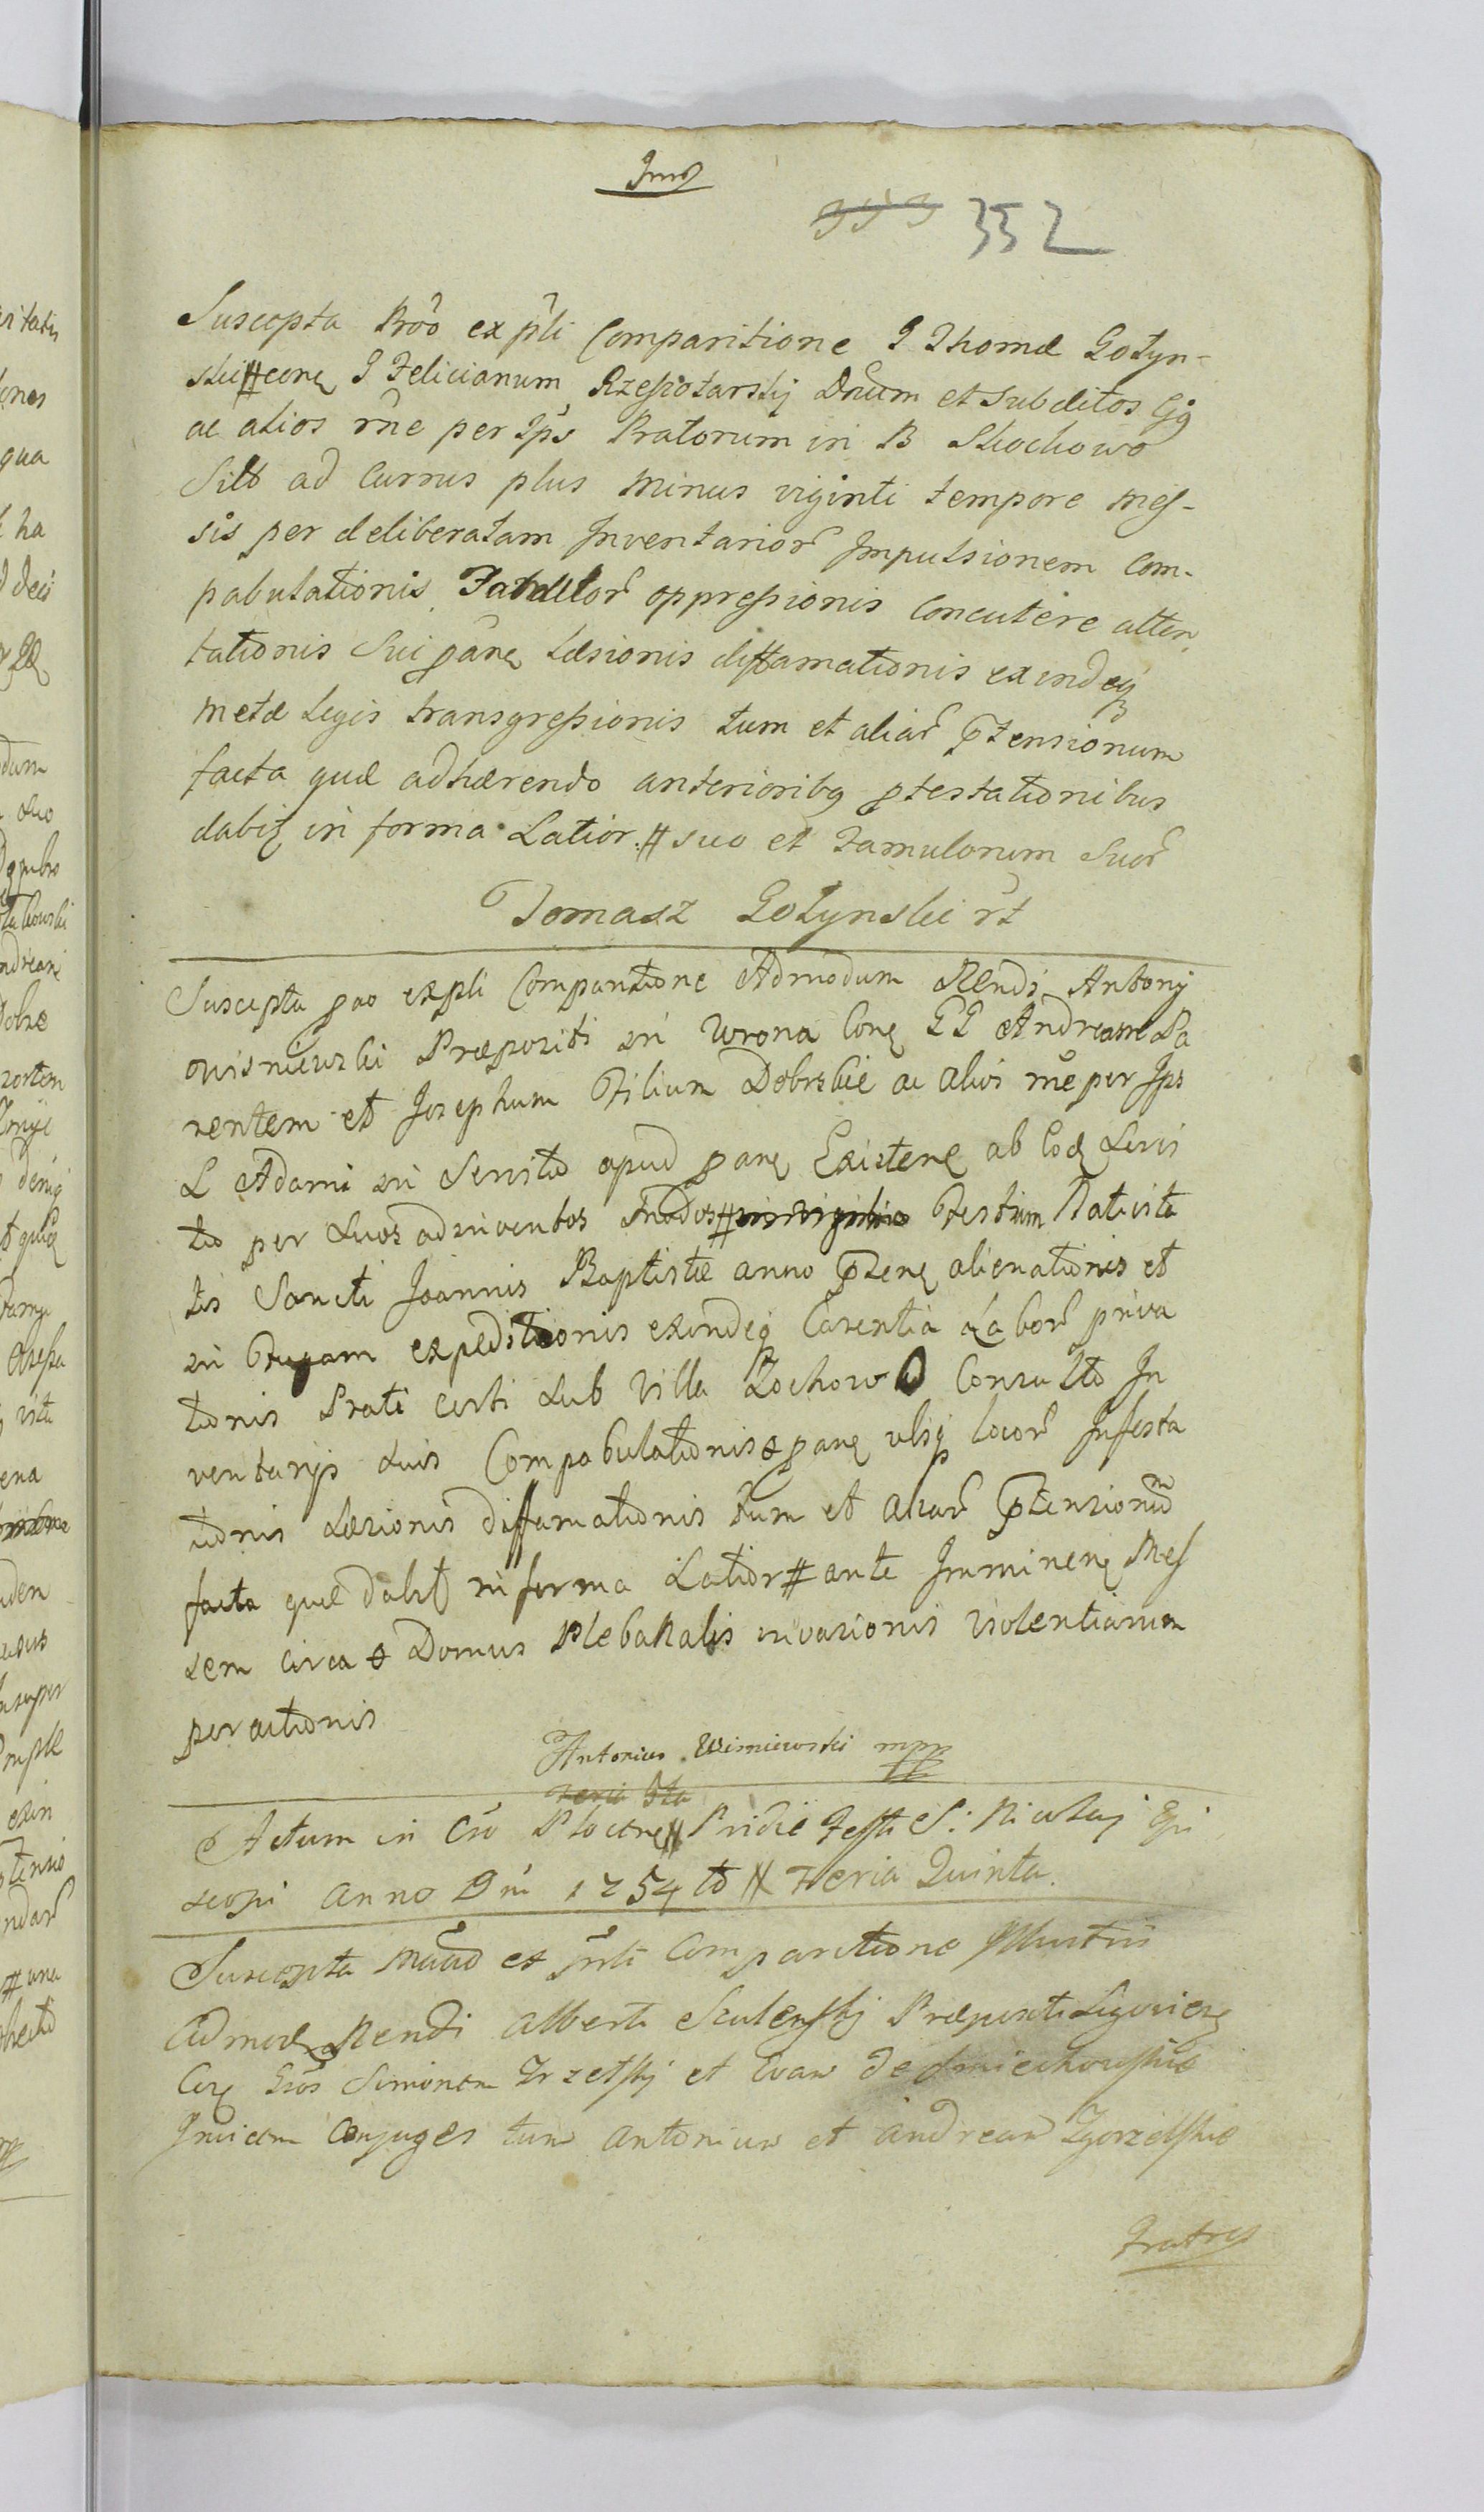 352
Suscepta Prõo ex pñti Comparitione G Thomæ Gołyn-
ski # conq G Felicianum Rzeszotarskij Dnum et subditos Ejq
ac alios rñe per Ips Pratorum in B Skochowo
Sitt ad Currus plus minus viginti tempore mes-
sis per deliberatam Inventarior Impulsionem Com-
pabulationis oppressionis concutere atten
tationis Sui læsionis diffamationis exindeq
metæ Legis transgressionis tum et aliar ptensionum
facta quæ adhærendo anterioribq ptestationibus
dabit in forma Latior. # suo et Famulorum Suor
Tomasz Gołynski rt
Suscepta pao expñti Comparitione Admodum Rendi Antonij
Wisniewski Præpositi in Wrona Conq GG Andream Pa
rentem et Josephum Filium Dobrskie ac alios rñe per Ips
L Adami in Servitio apud panq Existenq ab Eoq Servi
tio per suos adinventos modos # Festum Nativita
tis Sancti Joannis Baptistæ anno pzenq alienationis et
in Fugam expeditionis exindeq Carentia Labor priva
tionis Prati certi sub Villa Zochowo Consulto In
ventarijs suis Compabulationis panq ulsiq locor Infesta
tionis Læsionis diffamationis tum et aliar ptensionum
facta quæ dabit in forma Latior # ante Imminenq Mes
sem circa Domus Plebanalis invasionis violentiarum
peractionis
Antonius Wisniewski mpp
Feria 5ta
Actum in Cso Plocenq # Pridie Festi S: Nicolaj Epi
scopi anno Dni 1754to # Feria Quinta.
Suscepta et pñti Comparitione Illustris
Admodq Rendi Alberti Szulenskij Præpositi Ligoviens
Coq Gsos Simonem Trzetskij et Evam de Smiechowskie
Invicem Conjuges tum Antonium et Andream Zgorzelskie
Fratres